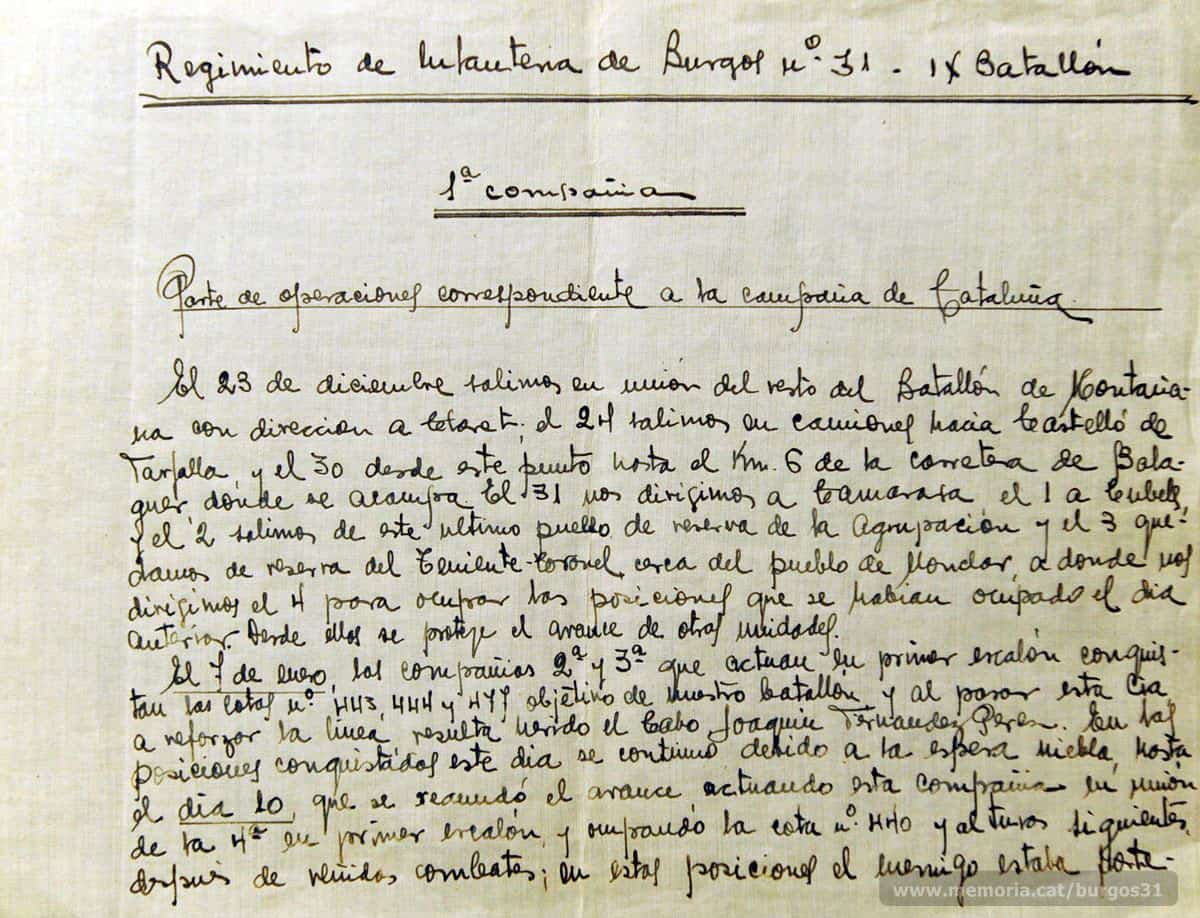 Regimiento de Infanteria de Burgos nº 31 - IX Batallón
1ª compañia
Parte de operaciones correspondiente a la campaña de Cataluña.
El 23 de diciembre salimos en unión del resto del Batallón de Montaña-
na con direccion a Claret; el 24 salimos en camiones hacia Castelló de
Tarfalla, y el 30 desde este punto hasta el Km. 6 de la carretera de Bala-
guer, donde se acampa. El 31 nos dirigimos a Camarasa, el 1 a Cubells,
y el 2 salimos de este ultimo pueblo de reserva de la Agrupación y el 3 que-
damos de reserva del Teniente-Coronel, cerca del pueblo de Monclar, a donde nos
dirigimos el 4 para ocupar las posiciones que se habian ocupado el dia
anterior. Desde ellas se proteje el avance de otras unidades.
El 7 de enero, las compañias 2ª y 3ª que actuan en primer escalón conquis-
tan las cotas nº 443, 444 y 477 objetivo de nuestro batallón y al pasar esta Cia
a reforzar la linea, resulta herido el Cabo Joaquin Fernandez Peres. En las
posiciones conquistadas este dia se continuó debido a la espesa niebla, hasta
el dia 10, que se reanudó el avance actuando esta compañia en unión
de la 4ª en primer escalón, y ocupando la cota nº 440 y alturas siguientes,
después de reñidos combates; en estas posiciones el enemigo estaba forte-
www.memoria.cat/burgos31